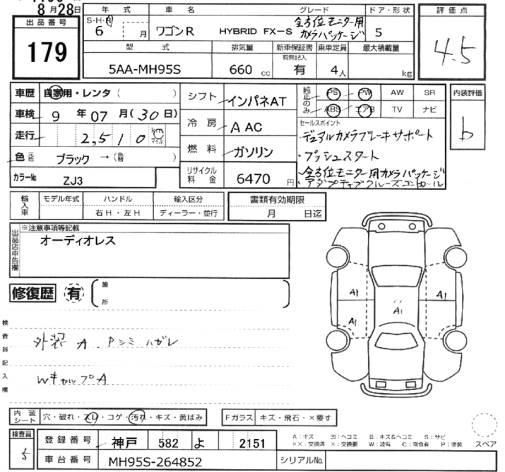 8月28日
出品番号
179
年式
S・H・R
6 月
車名
ワゴンR
グレード
HYBRID FX-S 全方位モニター用カメラパッケージ
ドア・形状
5
評価点
4.5
型式
5AA-MH95S
排気量
660 cc
新車保証書
有
乗車定員
4人
最大積載量
kg
車歴 自家用・レンタ( )
車検 9年07月(30日)
走行 2,510 km
色 ブラック →( )
カラー№ ZJ3
シフト インパネAT
冷房 AAC
燃料 ガソリン
リサイクル料金 6470円
純正のみ
PS PW AW SR
ABS エアB TV ナビ
内装評価
b
セールスポイント
・デュアルカメラブレーキサポート
・プッシュスタート
・全方位モニター用カメラパッケージ
・アダプティブクルーズコントロール
輸入車
モデル年式
ハンドル
右H・左H
輸入区分
ディーラー・並行
書類有効期限
月 日迄
※注意事項等記載
オーディオレス
修復歴 有
箇所
検査員記入欄
外装A、Pシミハガレ
WキャップA
A1
A1
A1
内装シート
穴・破れ・スレ・コゲ・汚れ・キズ・黄ばみ
Fガラス キズ・飛石・×要す
検査員
登録番号 神戸 582 よ 2151
車台番号 MH95S-264852
シリアル№
スペア